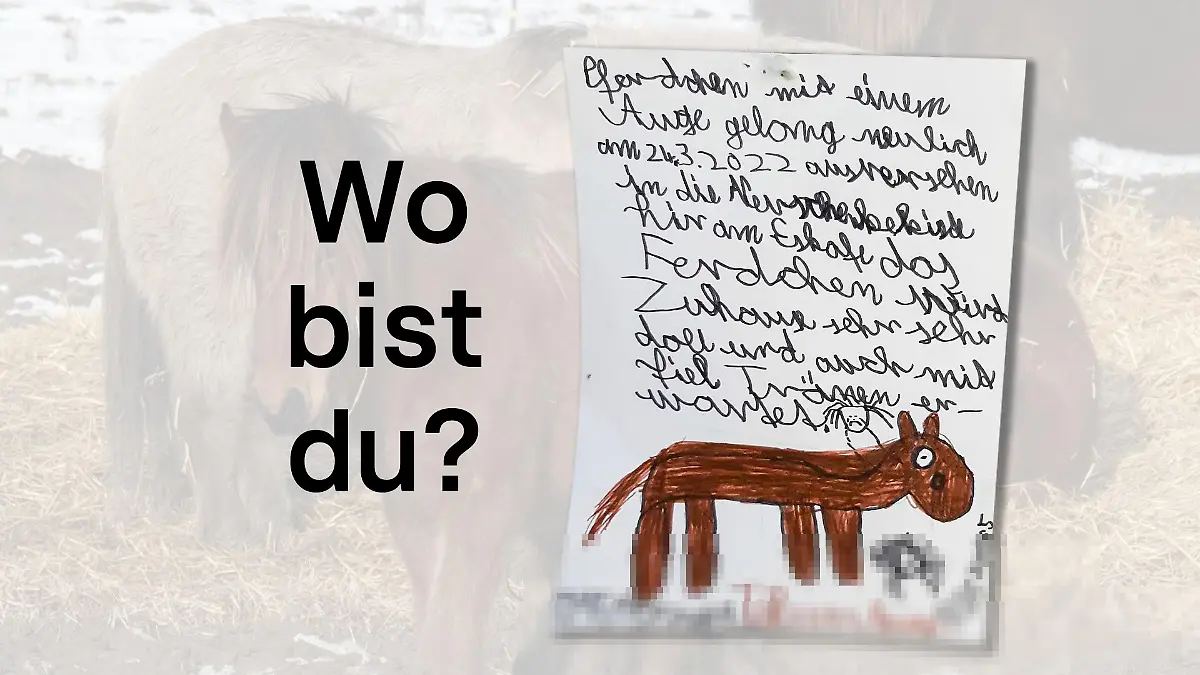 Wo
bist
du?
Pferdchen mit einem
Auge gelang neulich
am 24.3.2022 ausversehen
In die Verschenkekiste
hir am Eskafe das
Ferdchen wird
Zuhause sehr sehr
doll und auch mit
fiel Tränen er-
wartet.